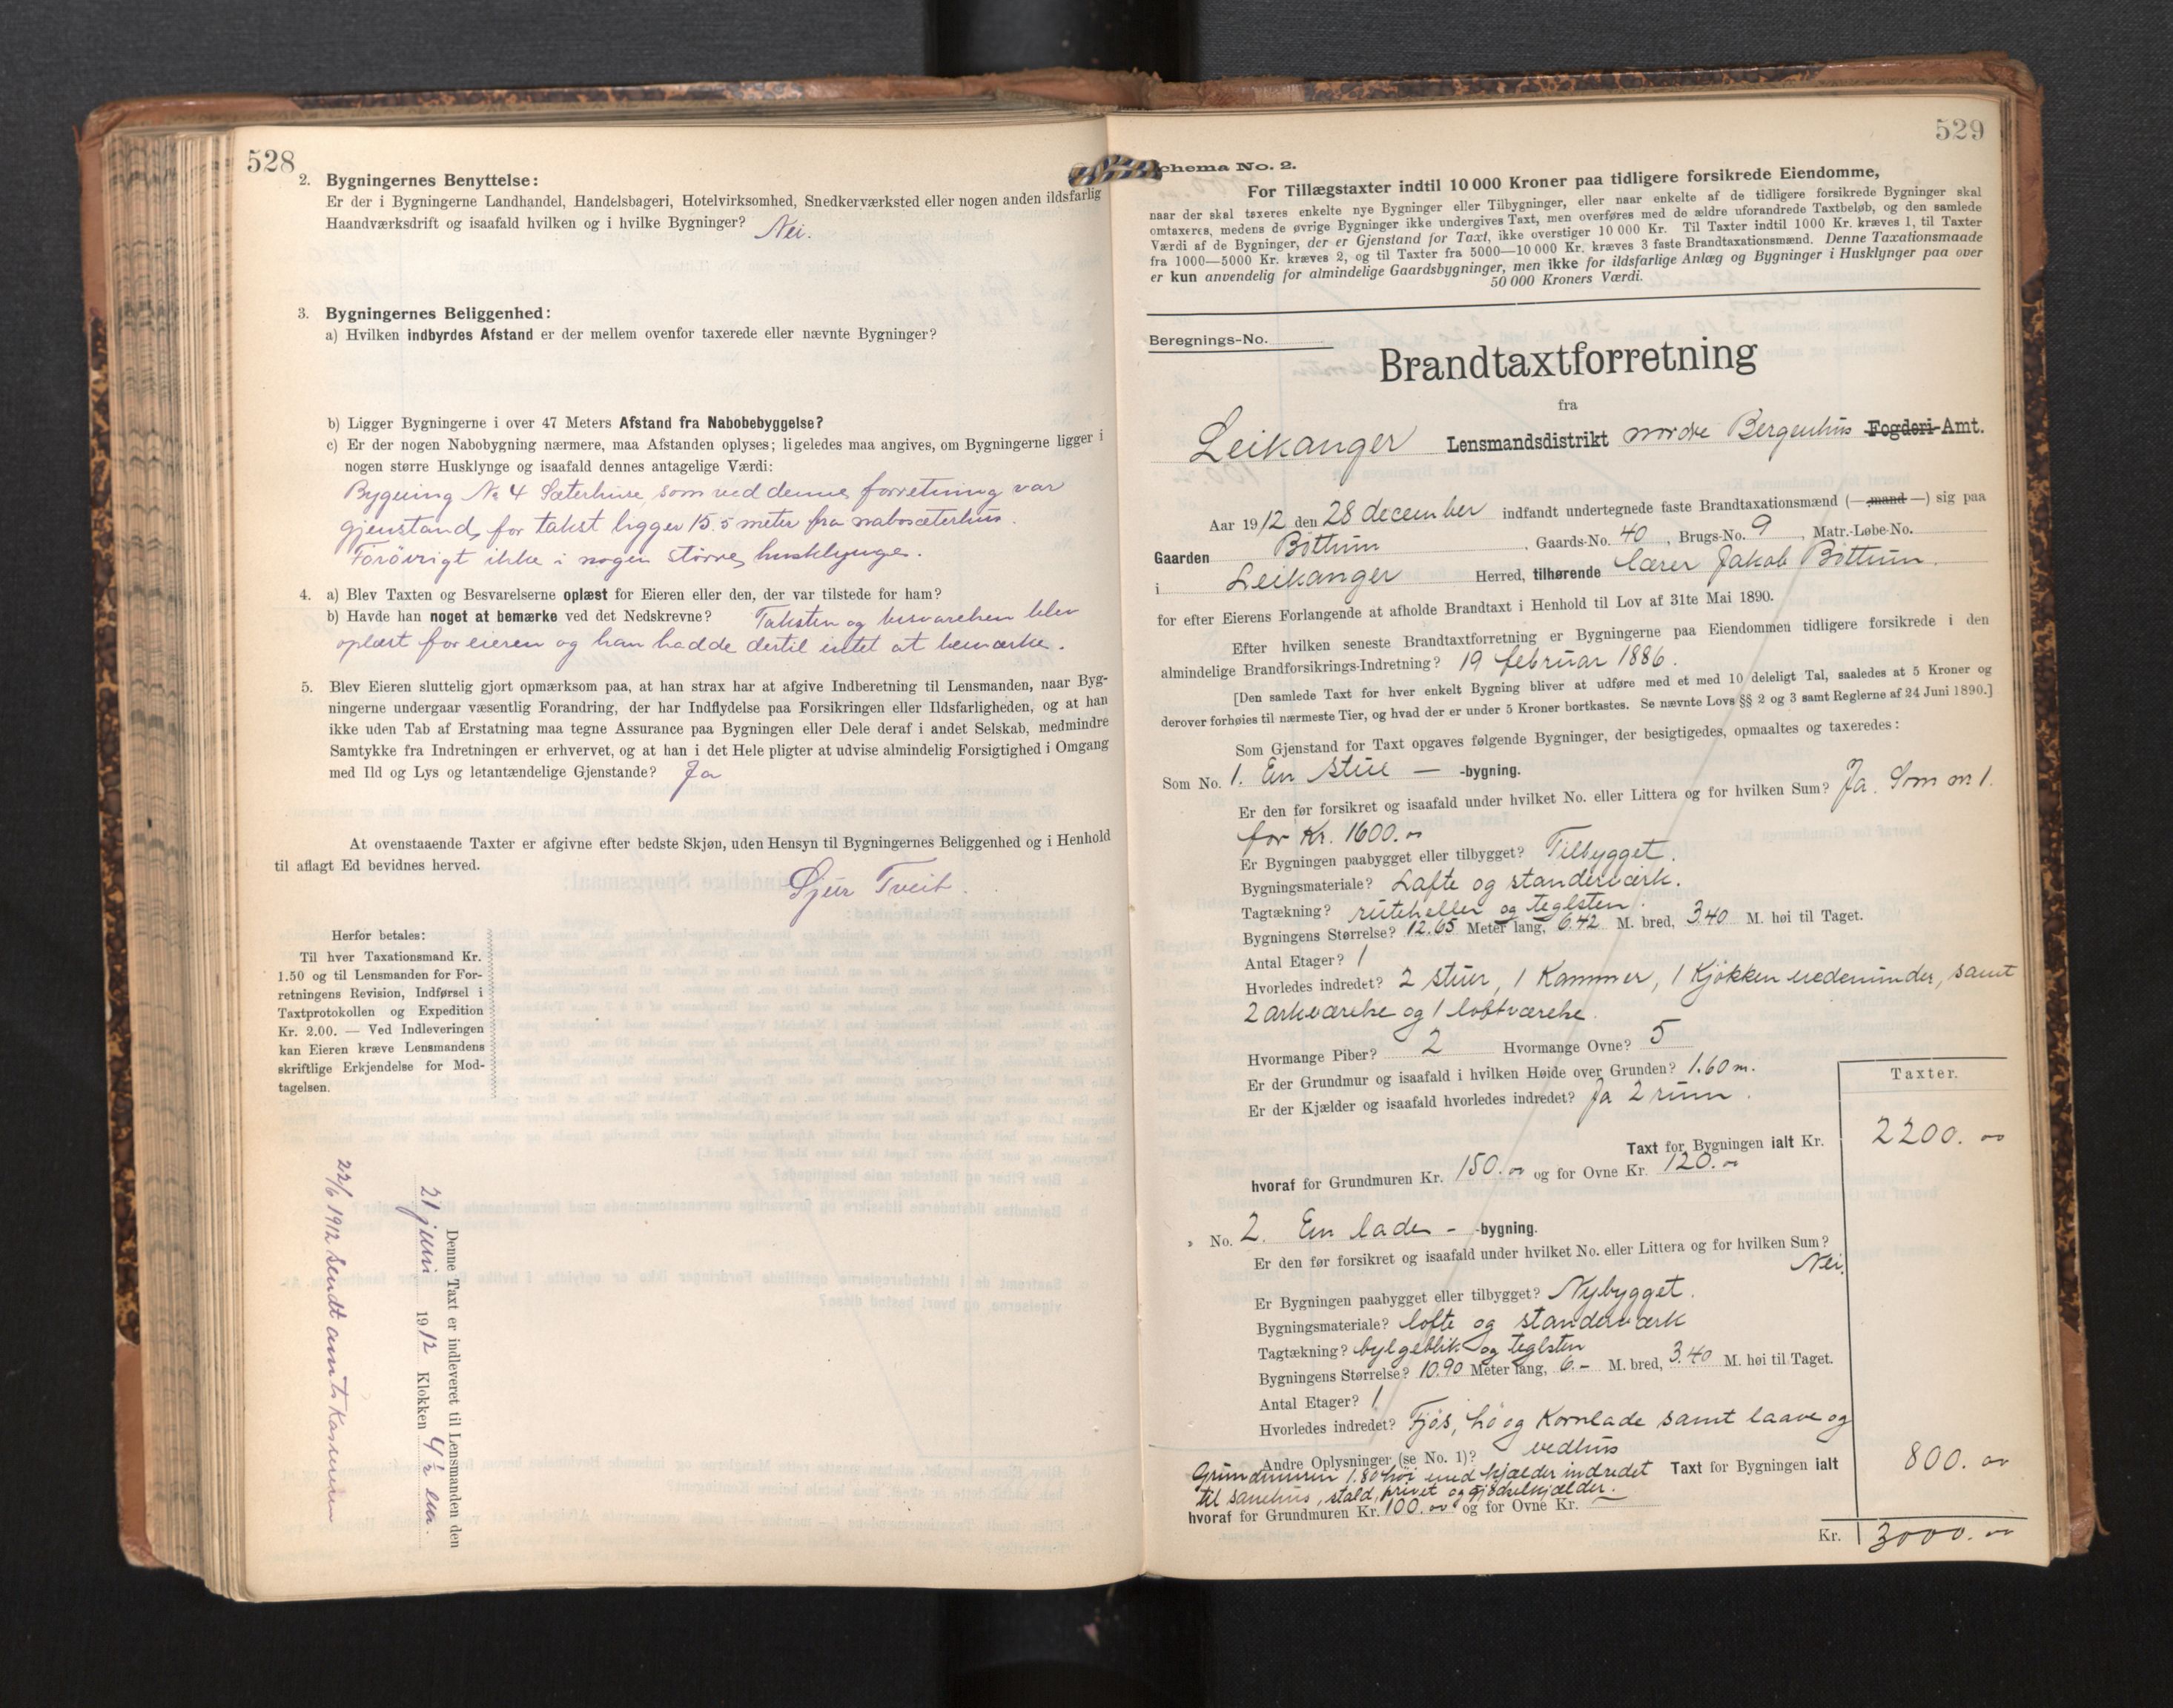 528
2. Bygningernes Benyttelse:
Er der i Bygningerne Landhandel, Handelsbageri, Hotelvirksomhed, Snedkerværksted eller nogen anden ildsfarlig
Haandværksdrift og isaafald hvilken og i hvilke Bygninger? Nei.
3. Bygningernes Beliggenhed:
a) Hvilken indbyrdes Afstand er der mellem ovenfor taxerede eller nævnte Bygninger?
b) Ligger Bygningerne i over 47 Meters Afstand fra Nabobebyggelse?
c) Er der nogen Nabobygning nærmere, maa Afstanden oplyses; ligeledes maa angives, om Bygningerne ligger i
nogen større Husklynge og isaafald dennes antagelige Værdi:
Bygning № 4 Sæterhuse, som ved denne forretning var
gjenstand for takst ligger 15.5 meter fra nabosæterhus.
Forøvrigt ikke i nogen større husklynge.
4. a) Blev Taxten og Besvarelserne oplæst for Eieren eller den, der var tilstede for ham?
b) Havde han noget at bemærke ved det Nedskrevne? Taksten og besvarelsen blev
oplæst for eieren og han hadde dertil intet at bemærke.
5. Blev Eieren sluttelig gjort opmærksom paa, at han strax har at afgive Indberetning til Lensmanden, naar Byg-
ningerne undergaar væsentlig Forandring, der har Indflydelse paa Forsikringen eller Ildsfarligheden, og at han
ikke uden Tab af Erstatning maa tegne Assurance paa Bygningen eller Dele deraf i andet Selskab, medmindre
Samtykke fra Indretningen er erhvervet, og at han i det Hele pligter at udvise almindelig Forsigtighed i Omgang
med Ild og Lys og letantændelige Gjenstande? Ja
At ovenstaaende Taxter er afgivne efter bedste Skjøn, uden Hensyn til Bygningernes Beliggenhed og i Henhold
til aflagt Ed bevidnes herved.
Sjur Tveit.
Herfor betales:
Til hver Taxationsmand Kr.
1.50 og til Lensmanden for For-
retningens Revision, Indførsel i
Taxtprotokollen og Expedition
Kr. 2.00. — Ved Indleveringen
kan Eieren kræve Lensmandens
skriftlige Erkjendelse for Mod-
tagelsen.
Denne Taxt er indleveret til Lensmanden den
21 juni 1912 Klokken 4½ em.
22/6 1912 Sendt amts Kasereren
529
Schema No. 2.
For Tillægstaxter indtil 10 000 Kroner paa tidligere forsikrede Eiendomme,
naar der skal taxeres enkelte nye Bygninger eller Tilbygninger, eller naar enkelte af de tidligere forsikrede Bygninger skal
omtaxeres, medens de øvrige Bygninger ikke undergives Taxt, men overføres med de ældre uforandrede Taxtbeløb, og den samlede
Værdi af de Bygninger, der er Gjenstand for Taxt, ikke overstiger 10 000 Kr. Til Taxter indtil 1000 Kr. kræves 1, til Taxter
fra 1000—5000 Kr. kræves 2, og til Taxter fra 5000—10 000 Kr. kræves 3 faste Brandtaxationsmænd. Denne Taxationsmaade
er kun anvendelig for almindelige Gaardsbygninger, men ikke for ildsfarlige Anlæg og Bygninger i Husklynger paa over
50 000 Kroners Værdi.
Beregnings-No.
Brandtaxtforretning
fra
Leikanger Lensmandsdistrikt nordre Bergenhus Fogderi-Amt.
Aar 1912 den 28 december indfandt undertegnede faste Brandtaxationsmænd (— mand —) sig paa
Gaarden Bøttum, Gaards-No. 40, Brugs-No. 9, Matr.-Løbe-No.
i Leikanger Herred, tilhørende lærer Jakob Bøttum.
for efter Eierens Forlangende at afholde Brandtaxt i Henhold til Lov af 31te Mai 1890.
Efter hvilken seneste Brandtaxtforretning er Bygningerne paa Eiendommen tidligere forsikrede i den
almindelige Brandforsikrings-Indretning? 19 februar 1886.
[Den samlede Taxt for hver enkelt Bygning bliver at udføre med et med 10 deleligt Tal, saaledes at 5 Kroner og
derover forhøies til nærmeste Tier, og hvad der er under 5 Kroner bortkastes. Se nævnte Lovs §§ 2 og 3 samt Reglerne af 24 Juni 1890.]
Som Gjenstand for Taxt opgaves følgende Bygninger, der besigtigedes, opmaaltes og taxeredes:
Som No. 1. En stue — -bygning.
Er den før forsikret og isaafald under hvilket No. eller Littera og for hvilken Sum? Ja. Som no 1.
for Kr. 1600.00
Er Bygningen paabygget eller tilbygget? Tilbygget.
Bygningsmateriale? Lafte og standerværk.
Tagtækning? rutheller og teglsten.
Bygningens Størrelse? 12.65 Meter lang, 6.42 M. bred, 3.40 M. høi til Taget.
Antal Etager? 1
Hvorledes indredet? 2 stuer, 1 Kammer, 1 Kjøkken nedenunder, samt
2 arkværelse og 1 loftværelse.
Hvormange Piber? 2 Hvormange Ovne? 5
Er der Grundmur og isaafald i hvilken Høide over Grunden? 1.60 m.
Er der Kjælder og isaafald hvorledes indredet? Ja 2 rum.
Taxter.
Taxt for Bygningen ialt Kr. 2200.00
hvoraf for Grundmuren Kr. 150.00 og for Ovne Kr. 120.00
" No. 2. En lade - -bygning.
Er den før forsikret og isaafald under hvilket No. eller Littera og for hvilken Sum?
Nei.
Er Bygningen paabygget eller tilbygget? Nybygget.
Bygningsmateriale? lofte og standerværk
Tagtækning? bylgeblik og teglsten
Bygningens Størrelse? 10.90 Meter lang, 6.- M. bred, 3.40 M. høi til Taget.
Antal Etager? 1
Hvorledes indredet? Fjøs, hø og Kornlade samt laave og
vedhus
Andre Oplysninger (se No. 1)?
Grundmuren 1.80 høi med kjælder indredet Taxt for Bygningen ialt 800.00
til sauehus, stald, privet og gjødselkjælder.
hvoraf for Grundmuren Kr. 100.00 og for Ovne Kr.
Kr. 3000.00